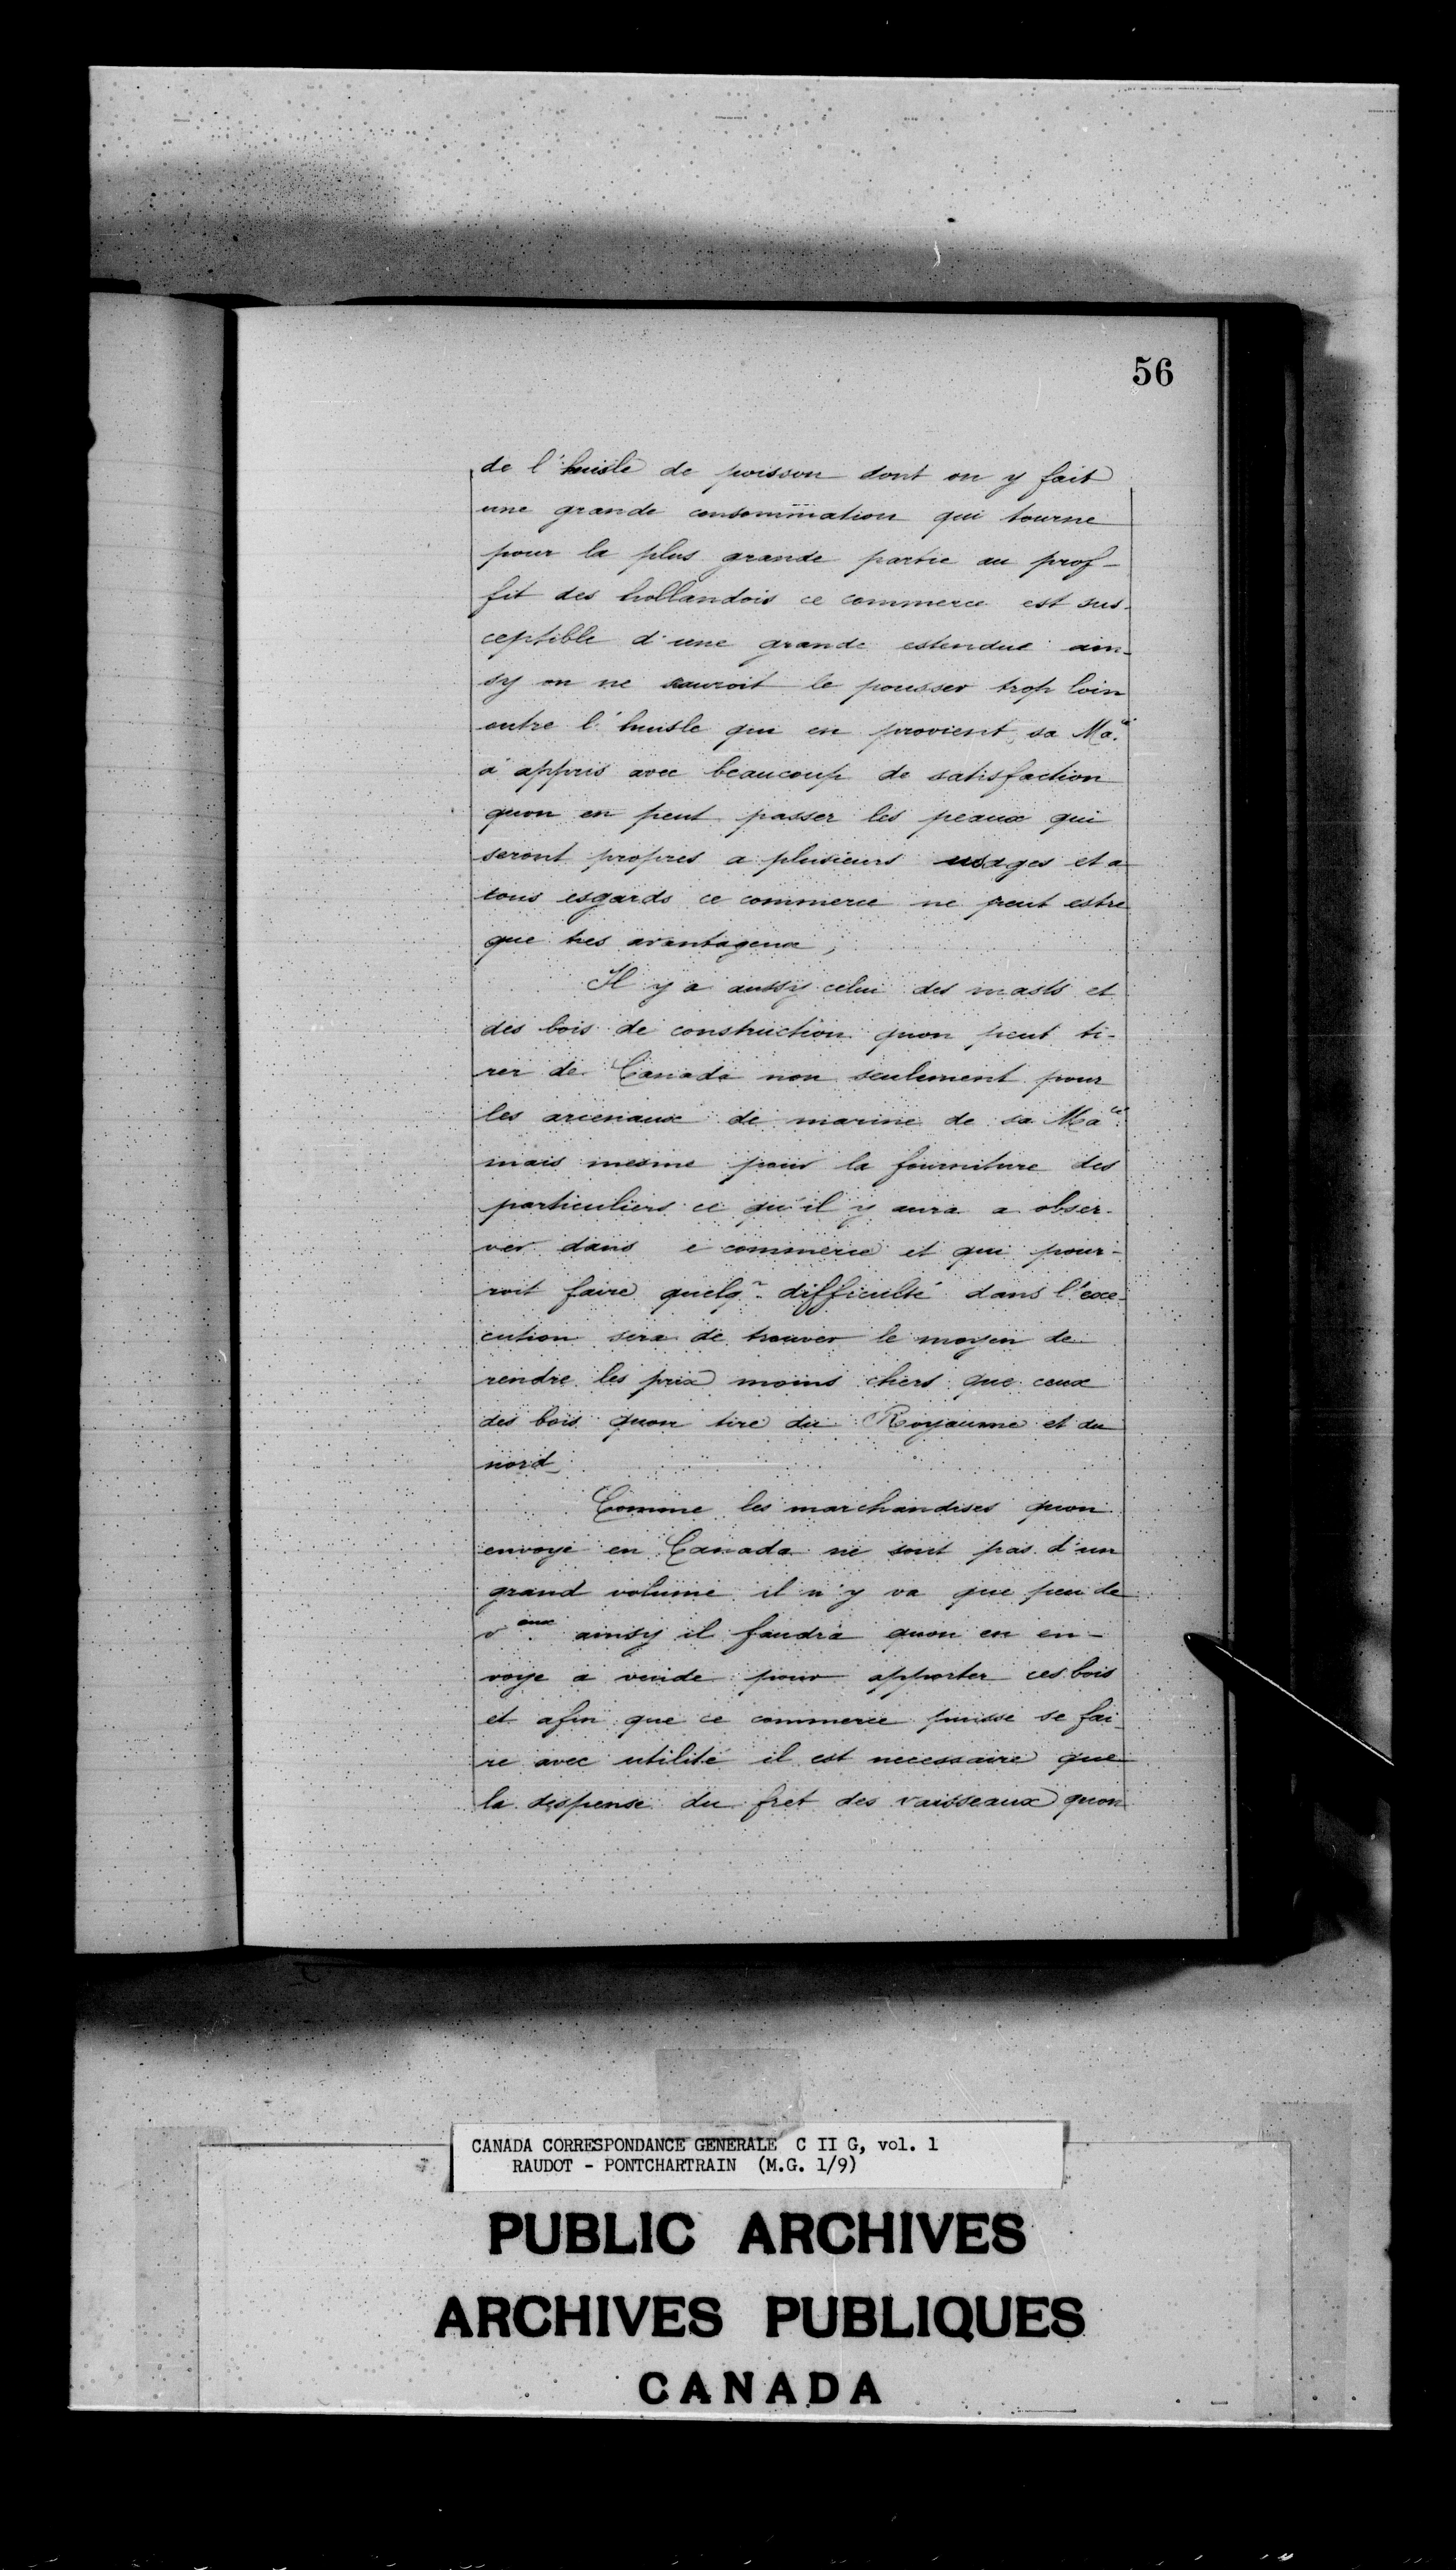 56
de l'huisle de poisson dont on y fait
une grande consommation qui tourne
pour la plus grande partie au prof-
fit des hollandois ce commerce est sus-
ceptible d'une grande estendue ain-
sy on ne sauroit le pousser trop loin
outre l'huisle qui en provient, sa Ma.té
a appris avec beaucoup de satisfaction
quon en peut passer les peaux qui
seront propres a plusieurs usages et a
tous esgards ce commerce ne peut estre
que tres avantageux,
Il y a aussy celui des masts et
des bois de construction quon peut ti-
rer de Canada non seulement pour
les arcenaux de marine de sa Ma.té
mais mesme pour la fourniture des
particuliers ce qu'il y aura a obser-
ver dans e commerce et qui pour-
roit faire quelq.e difficulté dans l'exe-
cution sera de trouver le moyen de
rendre les prix moins chers que ceux
des bois quon tire du Royaume et du
nord
Comme les marchandises quon
envoye en Canada ne sont pas d'un
grand volume il n'y va que peu de
v.aux ainsy il faudra quon en en-
voye a veuide pour apporter ces bois
et afin que ce commerce puisse se fai-
re avec utilité il est necessaire que
la despense du fret des vaisseaux quon
CANADA CORRESPONDANCE GENERALE C II G, vol. 1
RAUDOT - PONTCHARTRAIN (M.G. 1/9)
PUBLIC ARCHIVES
ARCHIVES PUBLIQUES
CANADA